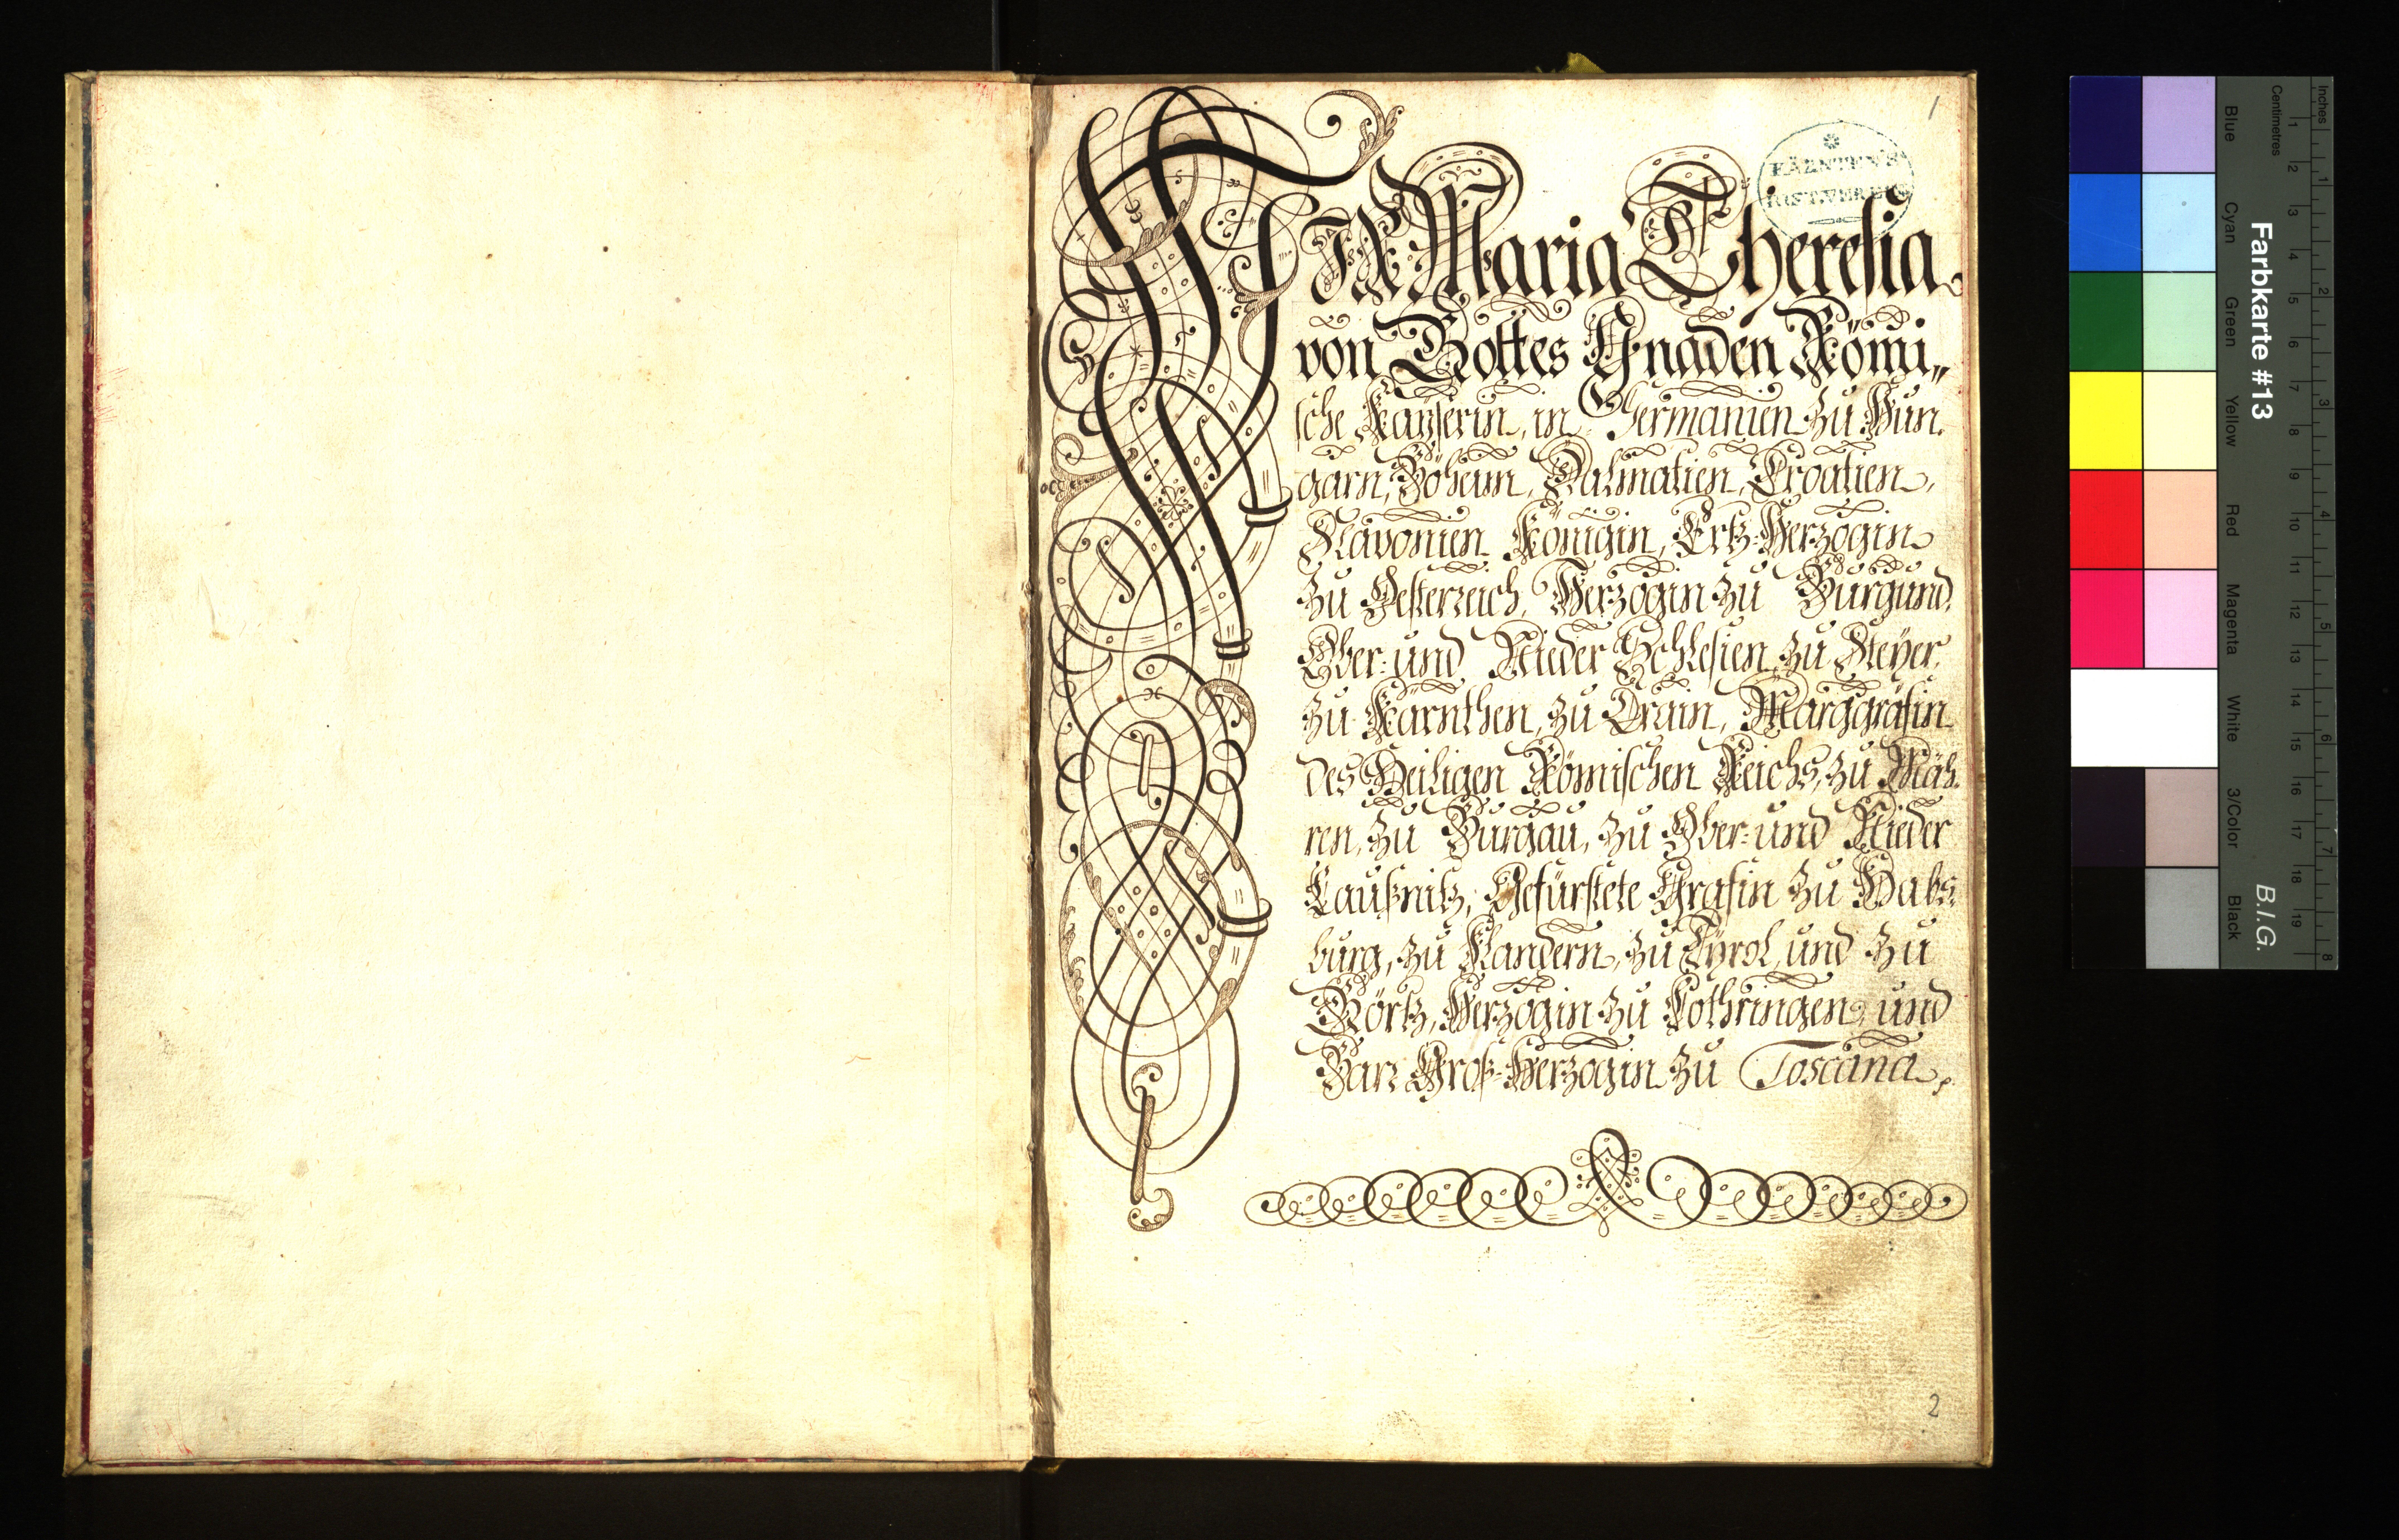 1
KÄRNTEN'S
HIST. VEREIN
WIR Maria Theresia
von Gottes Gnaden Römi„
sche Kaÿserin, in Germanien zu Hun.
garn, Böheim, Dalmatien, Croatien,
Slavonien Königin, Ertz-Herzogin
zu Oesterreich, Herzogin zu Burgund,
Ober: und Nieder Schlesien, zu Steÿer,
zu Kärnthen, zu Crain, Marggräfin
des Heiligen Römischen Reichs, zu Mäh.
ren, zu Burgau, zu Ober: und Nieder
Laußnitz, Gefürstete Gräfin zu Habs.
burg, zu Flandern, zu Tÿrol, und zu
Görtz, Herzogin zu Lothringen, und
Barr Groß-Herzogin zu Toscana,
2
Inches
Centimetres
1 2 3 4 5 6 7 8 9 10 11 12 13 14 15 16 17 18 19
1 2 3 4 5 6 7 8
Farbkarte #13
B.I.G.
Blue
Cyan
Green
Yellow
Red
Magenta
White
3/Color
Black